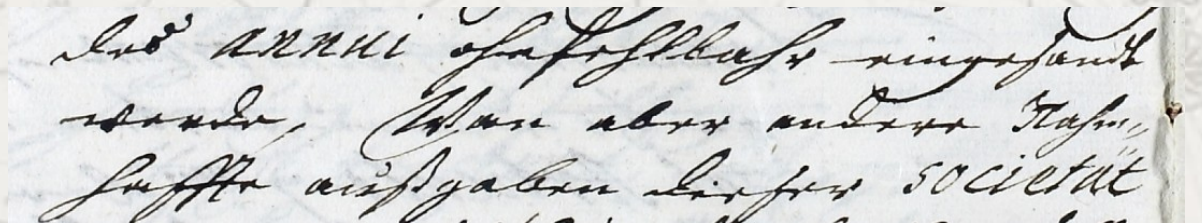 des annui ohnfehlbahr eingesandt
werde, Wan aber andere Nahm„
haffte außgaben dieser societät